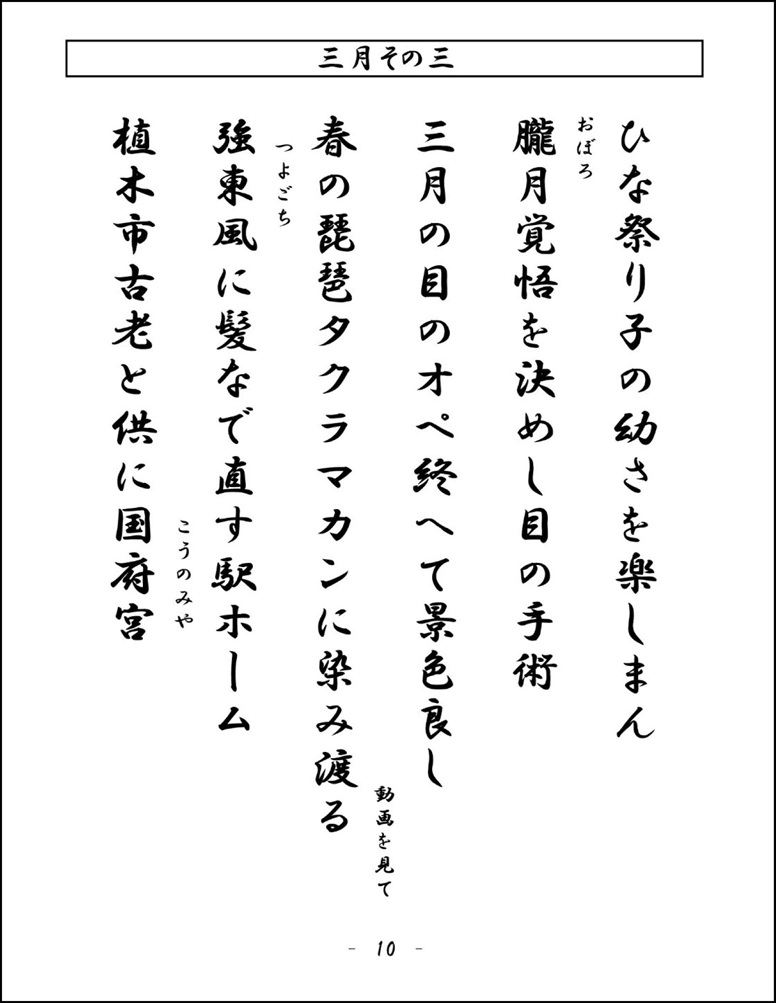 三月その三
ひな祭り子の幼さを楽しまん
おぼろ
朧月覚悟を決めし目の手術
三月の目のオペ終へて景色良し
動画を見て
春の琵琶タクラマカンに染み渡る
つよごち
強東風に髪なで直す駅ホーム
こうのみや
植木市古老と供に国府宮
- 10 -